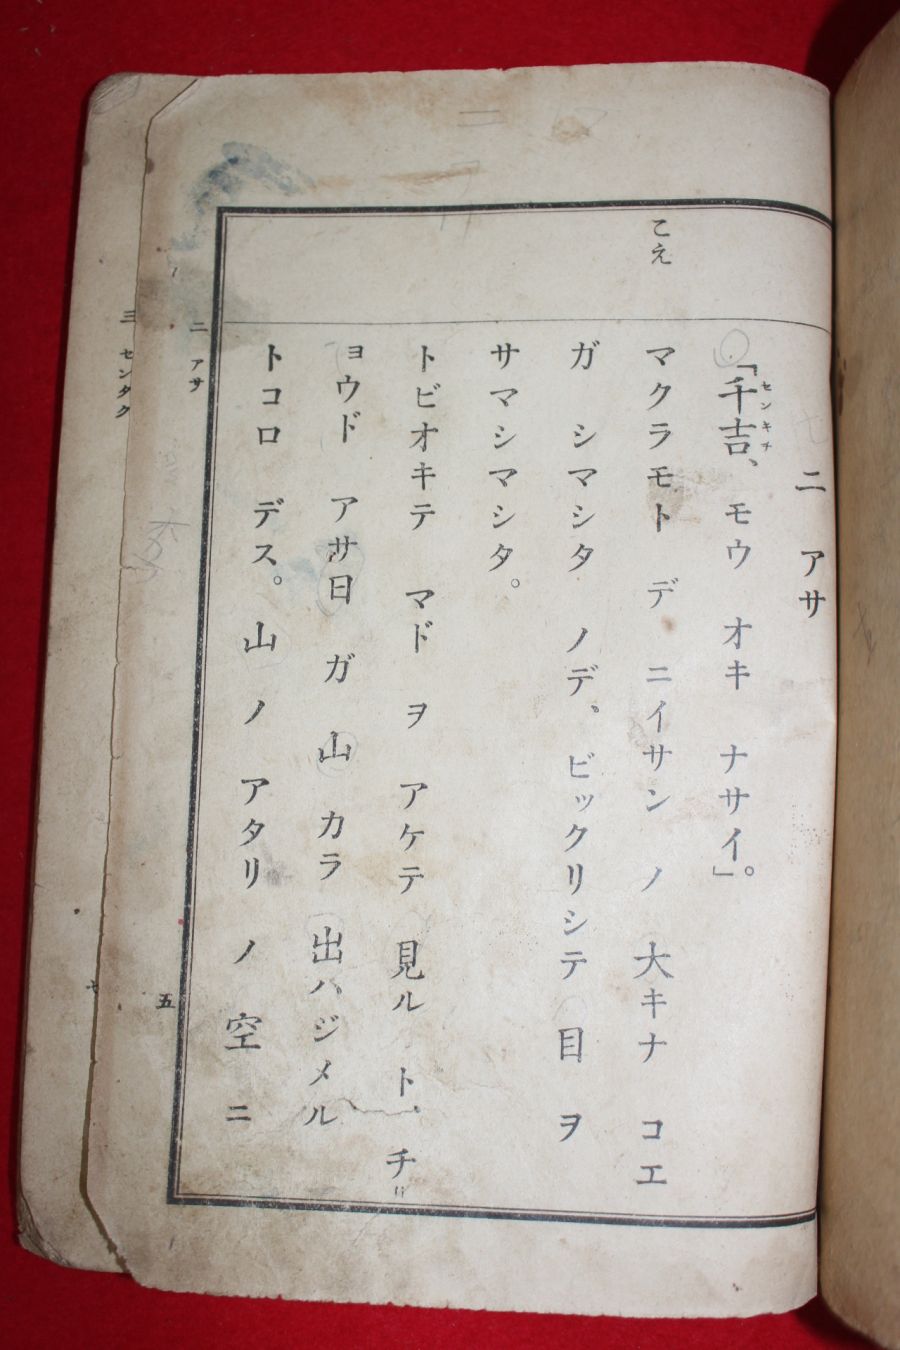 二 アサ
「千吉、モウ オキ ナサイ」。
センキチ
こえ
マクラモト デ ニイサン ノ 大キナ コエ
ガ シマシタ ノデ、ビックリシテ 目 ヲ
サマシマシタ。
トビオキテ マド ヲ アケテ 見ル ト、チ
ョウド アサ日 ガ 山 カラ 出ハジメル
トコロ デス。山 ノ アタリ ノ 空 ニ
二 アサ
五
三 センタク
七